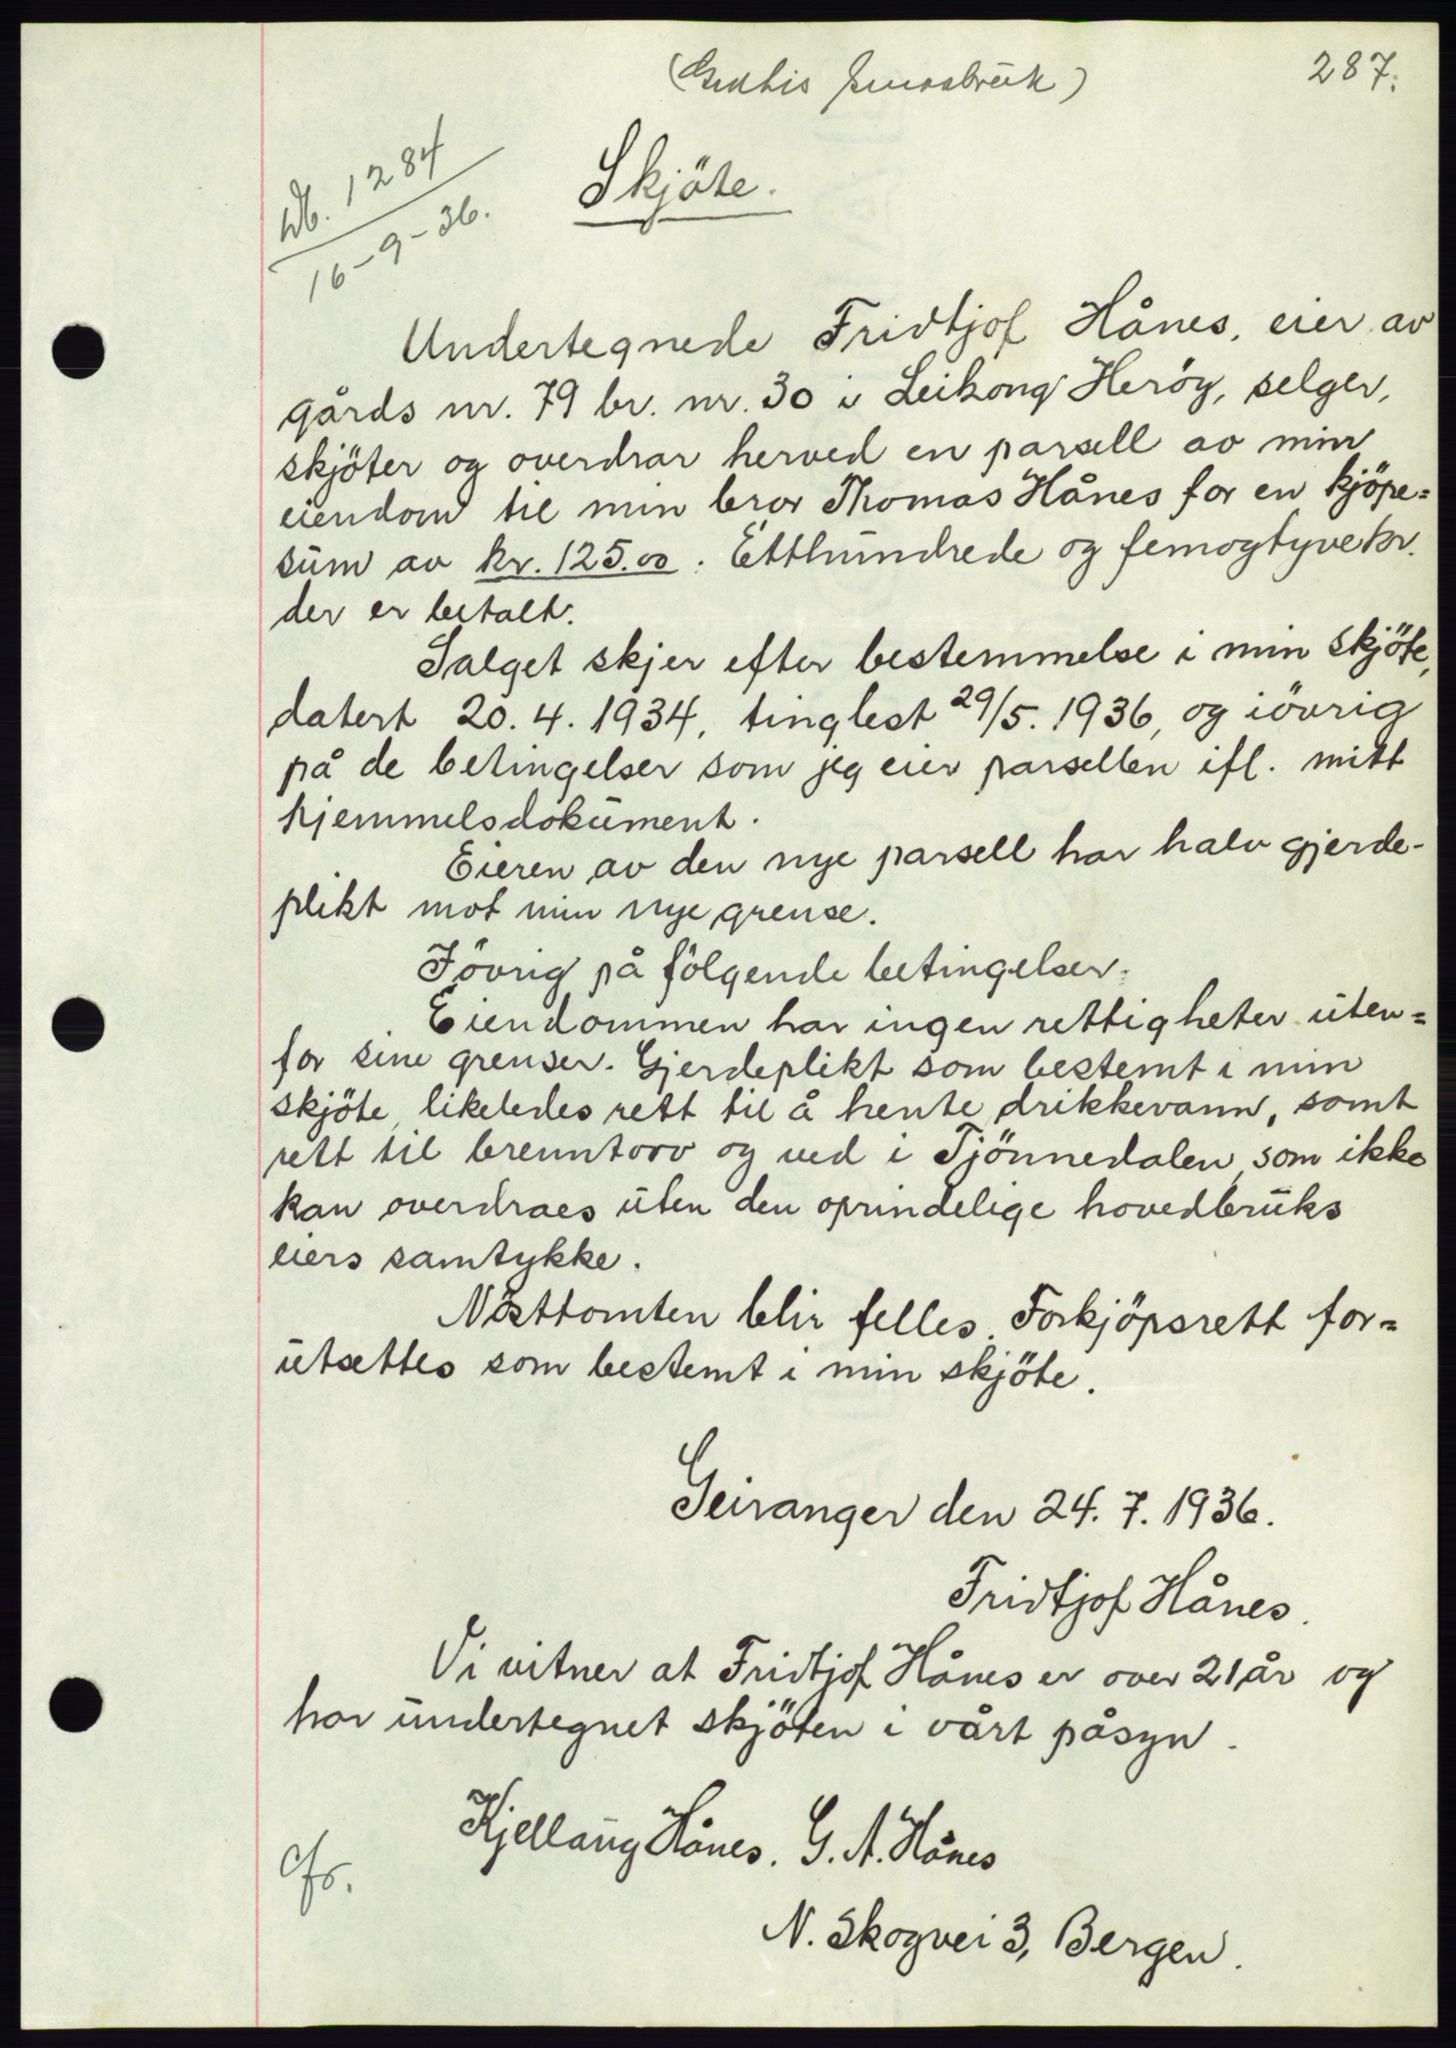 287.
Skjöte.
Db. 1284
16-9-36.
Undertegnede Fridtjof Hånes, eier av
gårds nr. 79 br. nr. 30 i Leikong Heröy, selger,
skjöter og overdrar herved en parsell av min
eiendom til min bror Thomas Hånes for en kjöpe=
sum av kr. 125.00. Etthundrede og femogtyve kr.
der er betalt.
Salget skjer efter bestemmelse i min skjöte,
datert 20. 4. 1934, tinglest 29/5. 1936, og iövrig
på de betingelser som jeg eier parsellen ifl. mitt
hjemmelsdokument.
Eieren av den nye parsell har halv gjerde-
plikt mot min nye grense.
Iövrig på fölgende betingelser:
Eiendommen har ingen rettigheter uten=
for sine grenser. Gjerdeplikt som bestemt i min
skjöte, likeledes rett til å hente drikkevann, samt
rett til brenntorv og ved i Tjönnedalen, som ikke
kan overdraes uten den oprindelige hovedbruks
eiers samtykke.
Nösttomten blir felles. Forkjöpsrett for=
utsettes som bestemt i min skjöte.
Geiranger den 24. 7. 1936.
Fridtjof Hånes.
Vi vitner at Fridtjof Hånes er over 21 år og
har undertegnet skjöten i vårt påsyn.
Kjellaug Hånes. G. A. Hånes
N. Skogvei 3, Bergen.